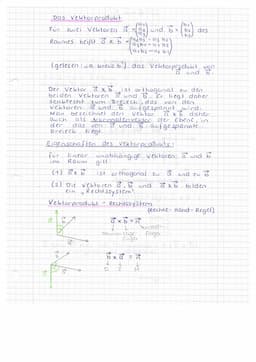 Das Vektorprodukt
Für zwei Vektoren a⃗ = (a₁ a₂ a₃) und b⃗ = (b₁ b₂ b₃) des
Raumes heißt a⃗ x b⃗ = (a₂b₃ - a₃b₂ a₃b₁ - a₁b₃ a₁b₂ - a₂b₁)
(gelesen: „a kreuz b") das Vektorprodukt von
a⃗ und b⃗.
Der Vektor a⃗ x b⃗ ist orthogonal zu den
beiden Vektoren a⃗ und b⃗. Er liegt daher
senkrecht zum Dreieck, das von den
Vektoren a⃗ und b⃗ aufgespannt wird.
Man bezeichnet den Vektor a⃗ x b⃗ daher
auch als Normalenvektor der Ebene, in
der das von a⃗ und b⃗ aufgespannte
Dreieck liegt.
Eigenschaften des Vektorprodukts:
Für linear unabhängige Vektoren a⃗ und b⃗
im Raum gilt:
(1) a⃗ x b⃗ ist orthogonal zu a⃗ und zu b⃗
(2) Die Vektoren a⃗, b⃗ und a⃗ x b⃗ bilden
ein „Rechtssystem"
Vektorprodukt - Rechtssystem
(Rechte-Hand-Regel)
a⃗ x b⃗ = n⃗
b⃗ x a⃗ = n⃗